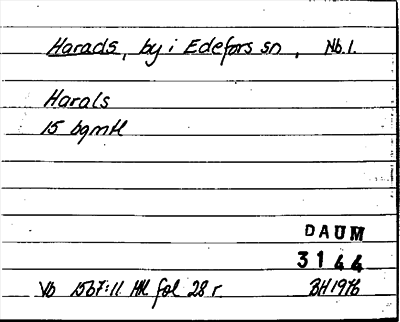 Harads, by i Edefors sn, Nb.l.
Harals
15 bgmtl
DAUM
3144
Vb 1567:11 HR fol 28 r BH 1976